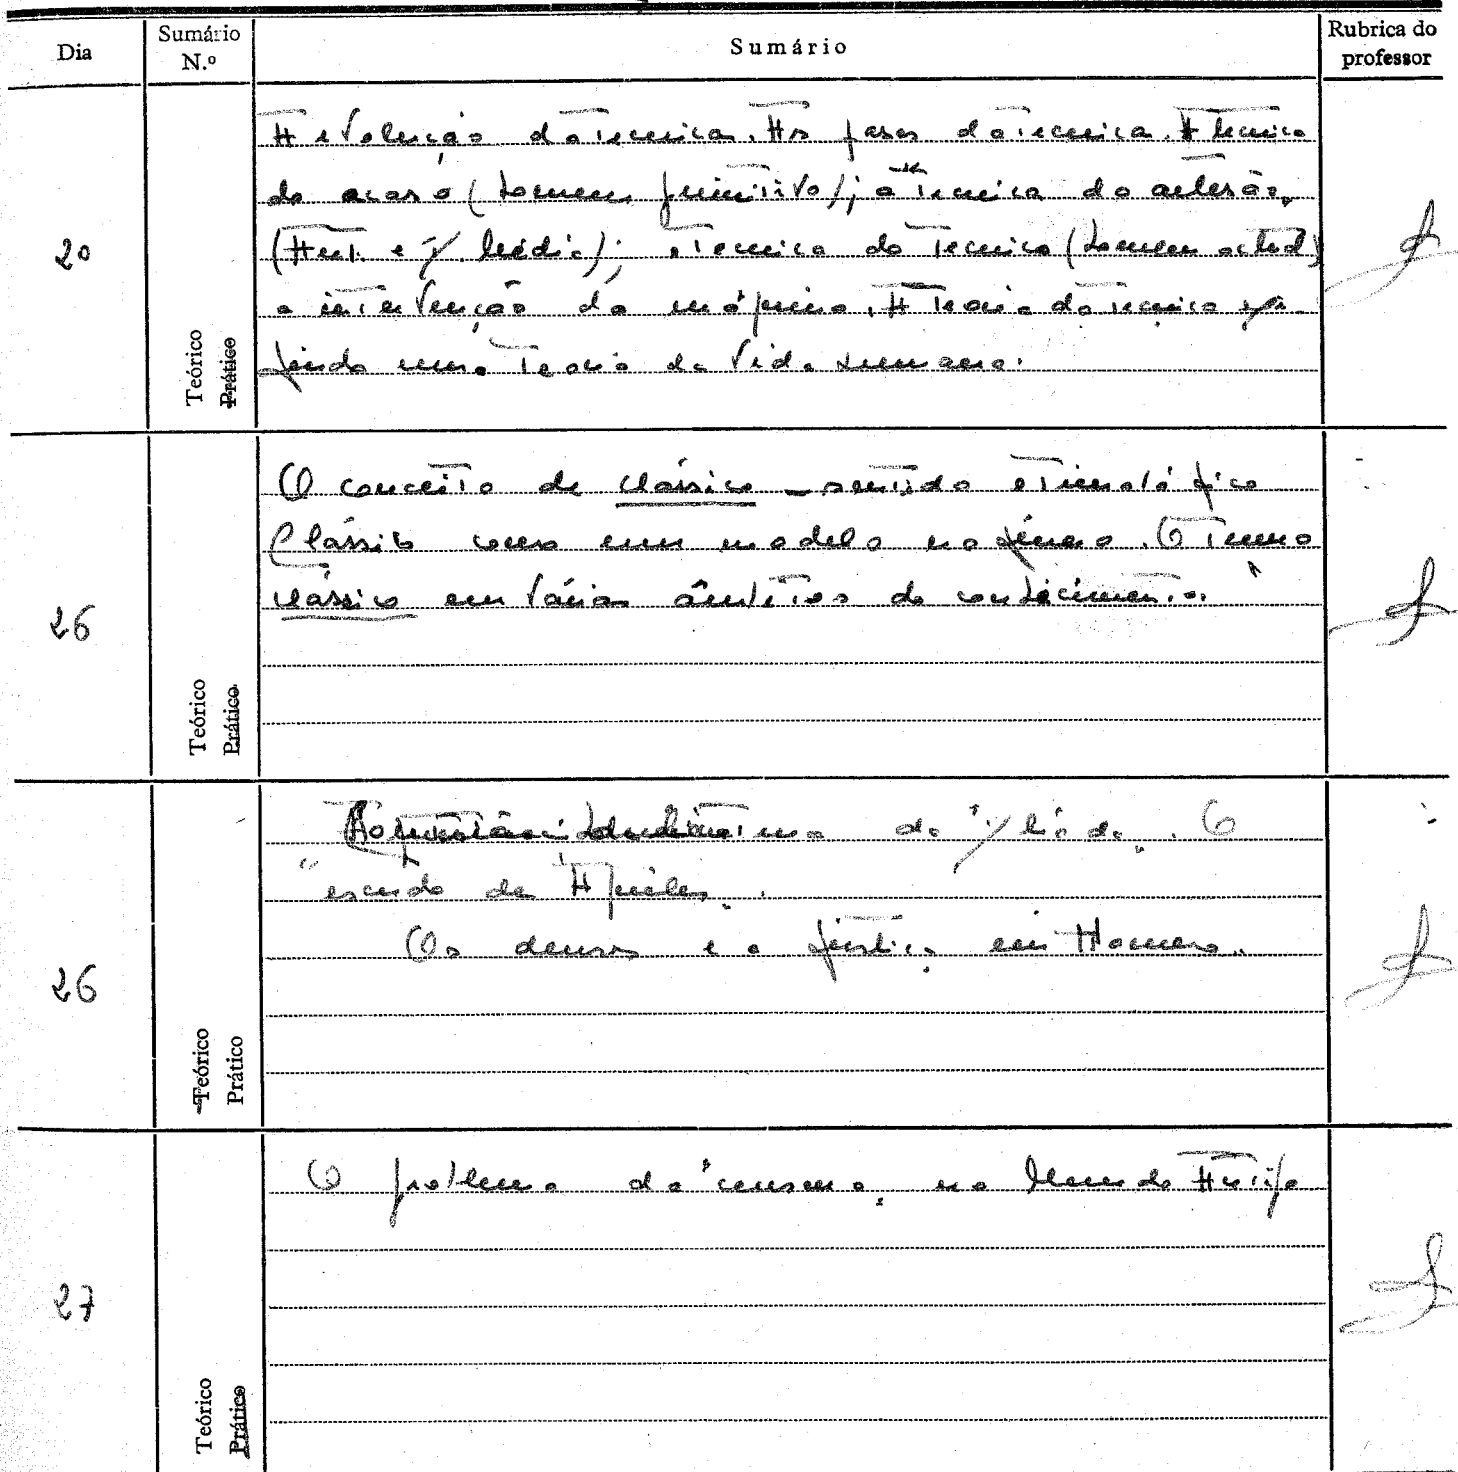 Dia
Sumário N.º
Sumário
Rubrica do professor
20
Teórico
Prático
A evolução da tecnica. As fases da tecnica. A tecnica
do acaso (homem primitivo); a tecnica do artesão
(Ant. e I. Média); a tecnica do tecnico (homem actual)
a intervenção da máquina. A teoria da tecnica exi-
gindo uma teoria da vida humana.
26
Teórico
Prático
O conceito de clássico – sentido etimológico
Clássico como um modelo no género. O termo
clássico em vários âmbitos do conhecimento.
26
Teórico
Prático
da "Ilíada". O
"escudo de Aquiles".
Os deuses e a justiça em Homero.
27
Teórico
Prático
O problema do cosmos no Mundo Antigo